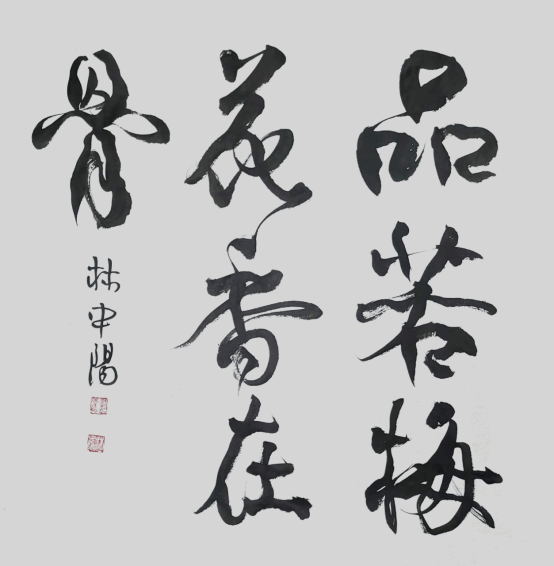 品若梅
花香在
骨
林中陽